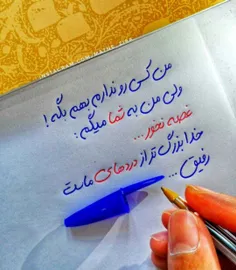 من کسی رو ندارم بهم بگه!
ولی من به شما میگم:
غصه نخور...
خدا بزرگ تر از دردهای ماست
رفیق...